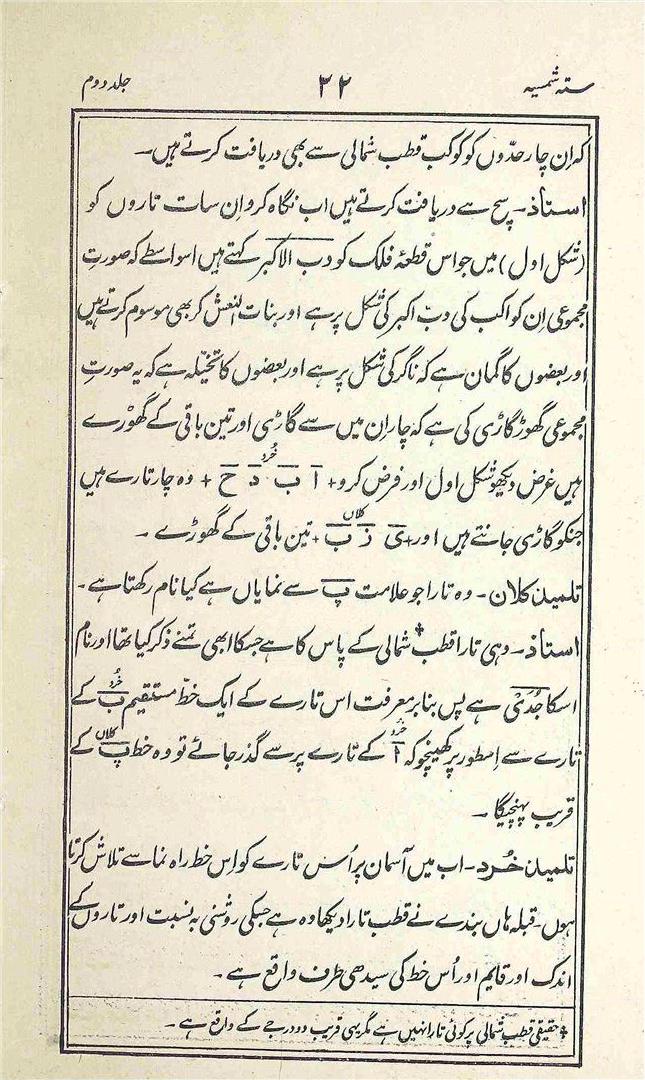 ستہ شمسیہ ۲۲ جلد دوم
کہ اِن چار حدّوں کو کوکب قطب شمالی سے بھی دریافت کرتے ہیں۔
استاذ۔ سچ ہے دریافت کرتے ہیں اب نگاہ کرو اِن سات تاروں کو
(شکل اول) میں جو اس قطعۂ فلک کو دب الاکبر کہتے ہیں اسواسطے کہ صورتِ
مجموعی اِن کواکب کی دبّ اکبر کی شکل پر ہے اور بنات النعش کر بھی موسوم کرتے ہیں
اور بعضوں کا گمان ہے کہ ناگر کی شکل پر ہے اور بعضوں کا تخیّلہ ہے کہ یہ صورتِ
مجموعی گھوڑ گاڑی کی ہے کہ چار اِن میں سے گاڑی اور تین باقی کے گھوڑے
ہیں غرض دیکھو شکل اول اور فرض کرو + آ ب د خُرد ح + وہ چار تارے ہیں
جنکو گاڑی جانتے ہیں اور + ی ذ ب کلاں + تین باقی کے گھوڑے ۔
تلمیذ کلان۔ وہ تارا جو علامت پ سے نمایاں ہے کیا نام رکھتا ہے۔
استاذ۔ وہی تارا قطب * شمالی کے پاس کا ہے جسکا ابھی تمنے ذکر کیا تھا اور نام
اسکا جُدَیْ ہے پس بنابر معرفت اس تارے کے ایک خطِ مستقیم ب خُرد کے
تارے سے اِسطور پر کھینچو کہ آ خُرد کے تارے پر سے گذر جائے تو وہ خط پ کلاں کے
قریب پہنچیگا ۔
تلمیذ خُرد۔ اب میں آسمان پر اُس تارے کو اِس خط راہ نما سے تلاش کرتا
ہوں۔ قبلہ ہاں بندے نے قطب تارا دیکھا وہ ہے جسکی روشنی بہ نسبت اور تاروں کے
اندک اور قایم اور اُس خط کی سیدھی طرف واقع ہے ۔
* حقیقی قطب شمالی پر کوئی تارا نہیں ہے مگر یہی قریب دو درجے کے واقع ہے ۔